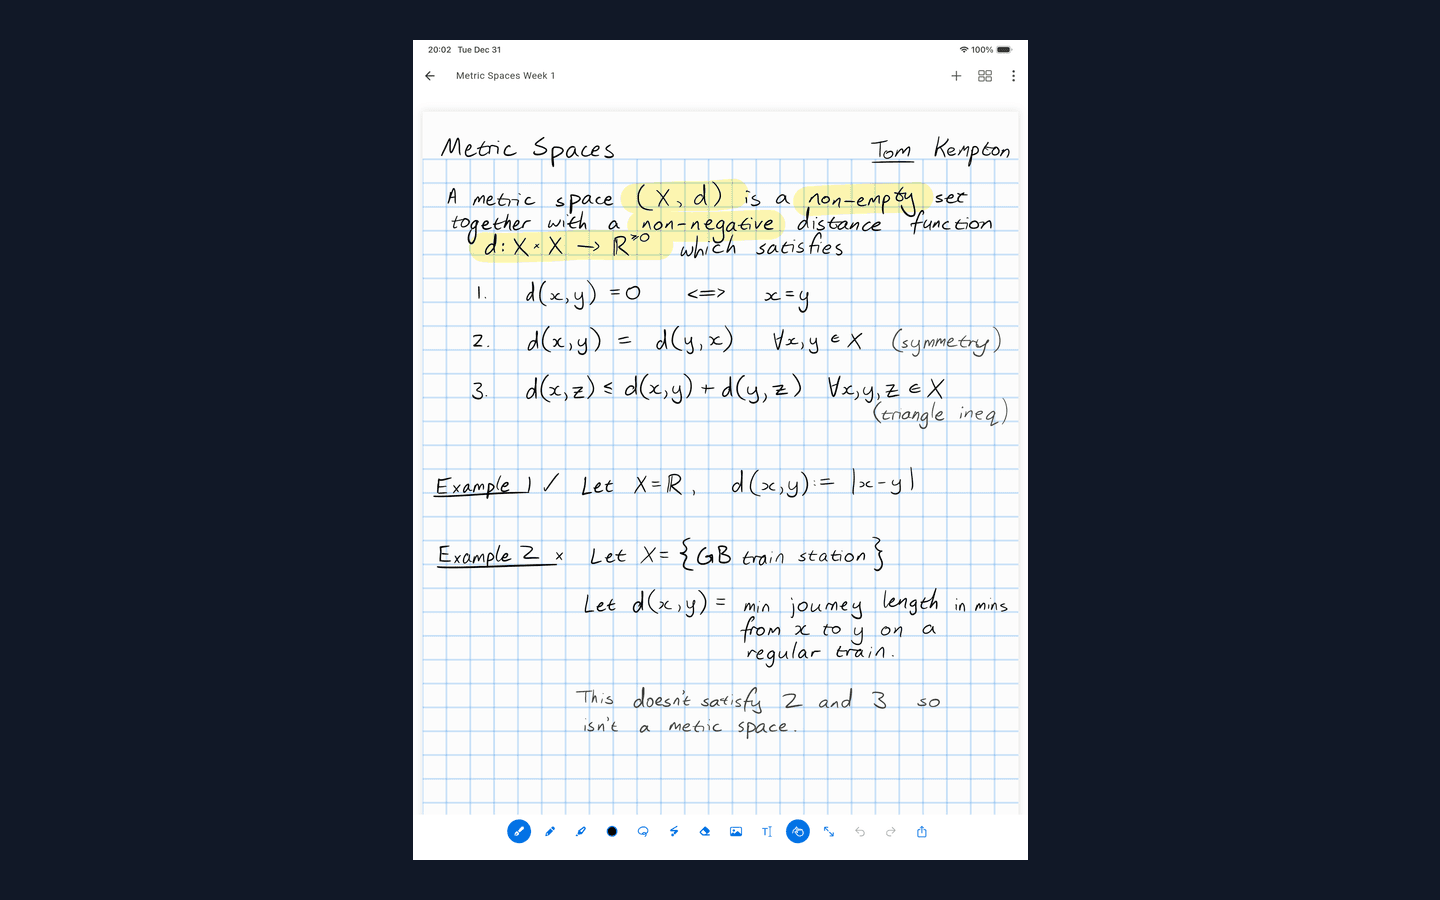 20:02 Tue Dec 31 100%
Metric Spaces Week 1
Metric Spaces Tom Kempton
A metric space (X, d) is a non-empty set
together with a non-negative distance function
d: X × X → ℝ^≥0 which satisfies
1. d(x,y) = 0 <=> x=y
2. d(x,y) = d(y,x) ∀x,y ∈ X (symmetry)
3. d(x,z) ≤ d(x,y) + d(y,z) ∀x,y,z ∈ X
(triangle ineq)
Example 1 ✓ Let X=ℝ, d(x,y):= |x-y|
Example 2 × Let X= {GB train station}
Let d(x,y) = min journey length in mins
from x to y on a
regular train.
This doesn't satisfy 2 and 3 so
isn't a metric space.